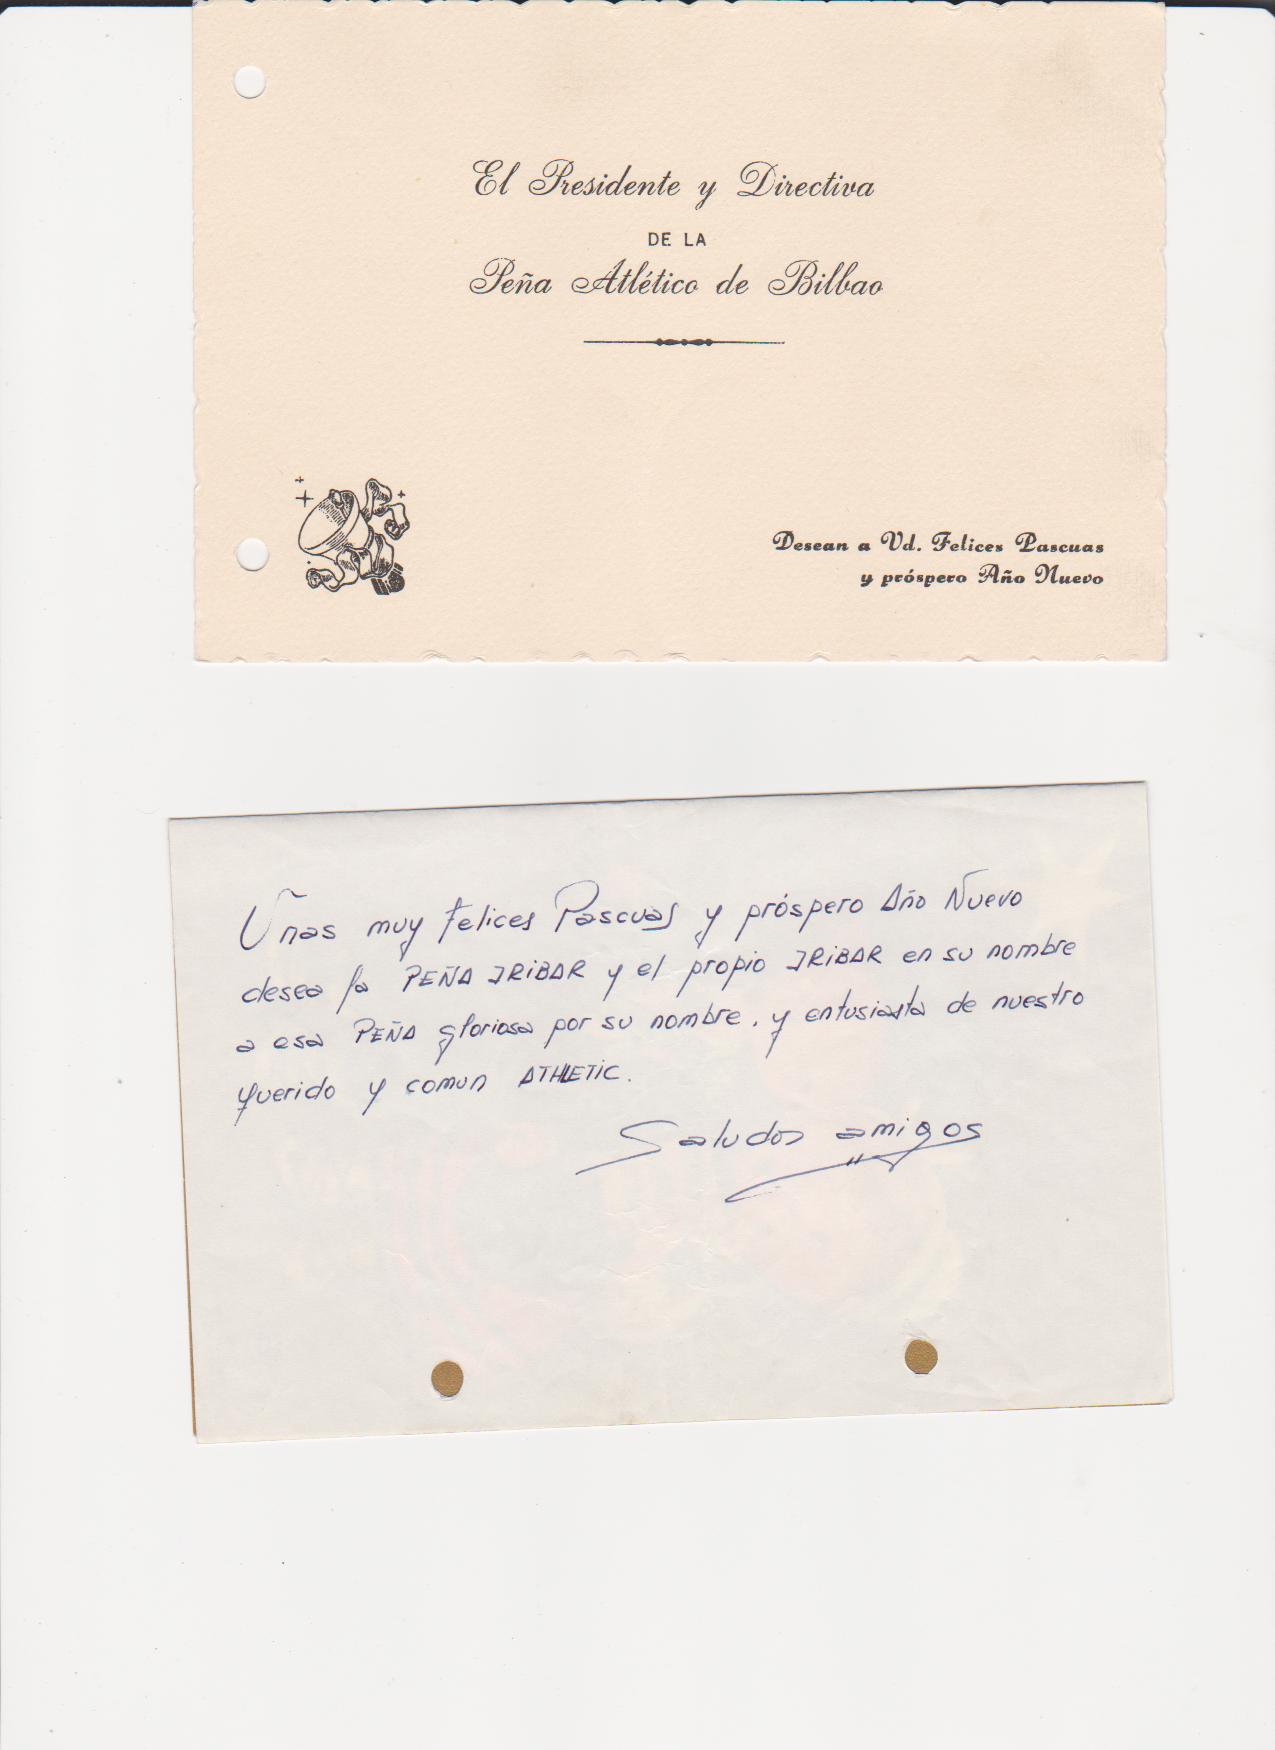 El Presidente y Directiva
DE LA
Peña Atlético de Bilbao
Desean a Vd. Felices Pascuas
y próspero Año Nuevo
Unas muy felices Pascuas y próspero Año Nuevo
desea la PEÑA IRIBAR y el propio IRIBAR en su nombre
a esa PEÑA gloriosa por su nombre, y entusiasta de nuestro
querido y comun ATHLETIC.
Saludos amigos